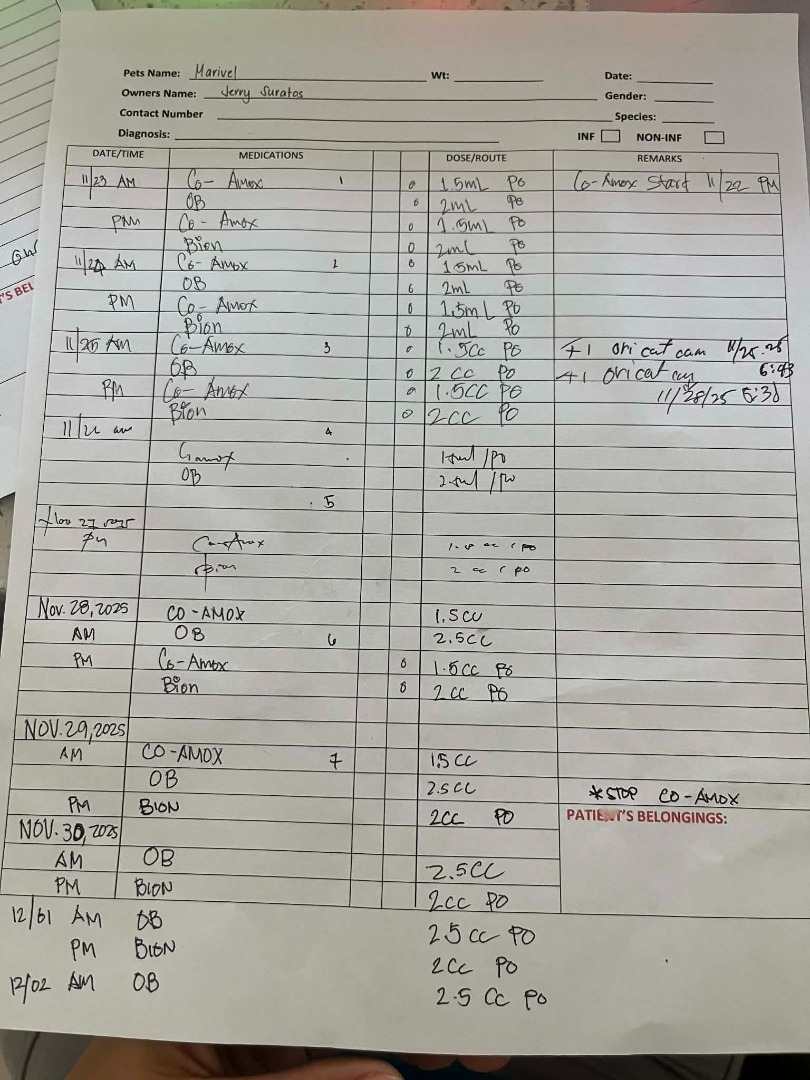 Pets Name: Marivel Wt: Date:
Owners Name: Jerry Suratos Gender:
Contact Number Species:
Diagnosis: INF NON-INF
DATE/TIME MEDICATIONS DOSE/ROUTE REMARKS
11/23 AM Co-Amox 1 1.5mL PO Co-Amox Start 11/22 PM
OB 2mL PO
PM Co-Amox 1.5mL PO
Bion 2mL PO
11/24 AM Co-Amox 2 1.5mL PO
OB 2mL PO
PM Co-Amox 1.5mL PO
Bion 2mL PO
11/25 AM Co-Amox 3 1.5cc PO +1 oricat can 11/25.25
OB 2cc PO +1 oricat 6:43
PM Co-Amox 1.5cc PO 11/28/25
Bion 2cc PO
4
OB
5
27
Co-Amox
Bion 2 cc PO
Nov. 28, 2025 CO-AMOX 1.5cc
AM OB 6 2.5cc
PM Co-Amox 1.5cc PO
Bion 2cc PO
NOV. 29, 2025
AM CO-AMOX 7 1.5cc
OB 2.5cc *STOP CO-AMOX
PM BION 2cc PO PATIENT'S BELONGINGS:
NOV. 30, 2025
AM OB 2.5CC
PM BION 2cc PO
12/01 AM OB 2.5cc PO
PM BION 2cc PO
12/02 AM OB 2.5cc PO